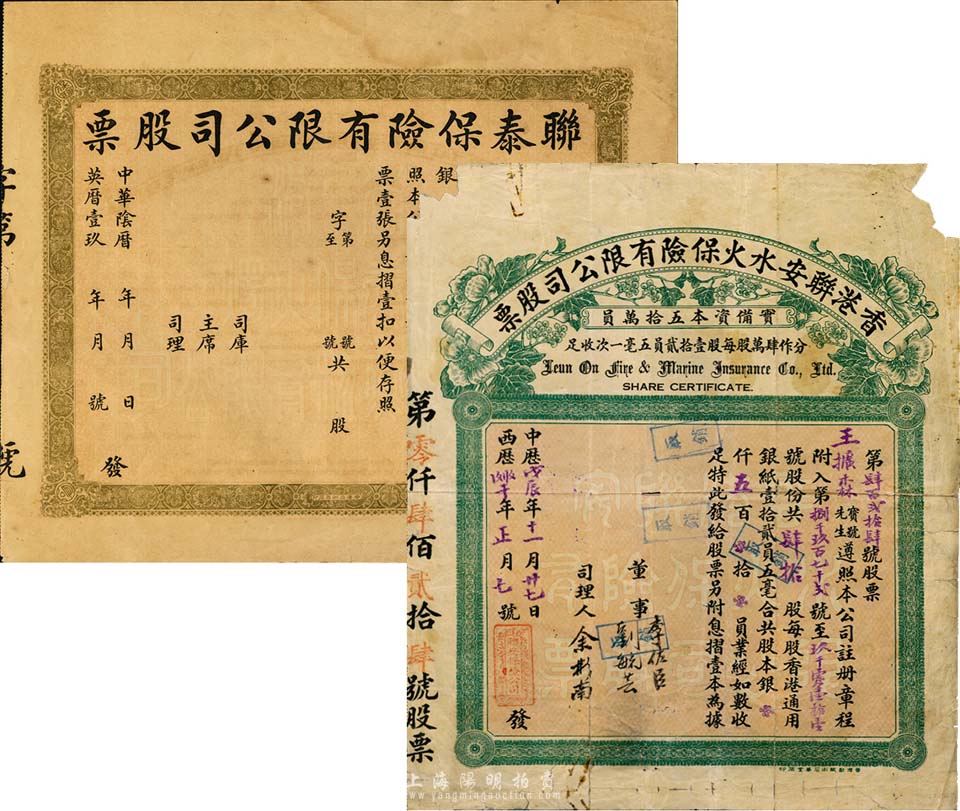 聯泰保險有限公司股票
銀
照本
票壹張另息摺壹扣以便存照
字第 號
至 號共 股
司庫
主席
司理
中華陰曆 年 月 日
英曆壹玖 年 月 號 發
字第
號
香港聯安水火保險有限公司股票
實備資本五拾萬員
分作肆萬股每股壹拾貳員五毫一次收足
Leun On Fire & Marine Insurance Co., Ltd.
SHARE CERTIFICATE.
第肆百貳拾肆號股票
王擴森寶號先生遵照本公司註册章程
附入第捌千玖百七十貳號至玖千零壹拾壹
號股份共肆拾股每股香港通用
銀紙壹拾貳員五毫合共股本銀
仟五百 拾 員業經如數收
足特此發給股票另附息摺壹本為據
董事 李佐臣
劉毓芸
司理人 余彬南
中曆戊辰年十一月廿七日
西曆 年正月七號 發
第零仟肆佰貳拾肆號股票
註銷
上海陽明拍賣
www.yangmingauction.com